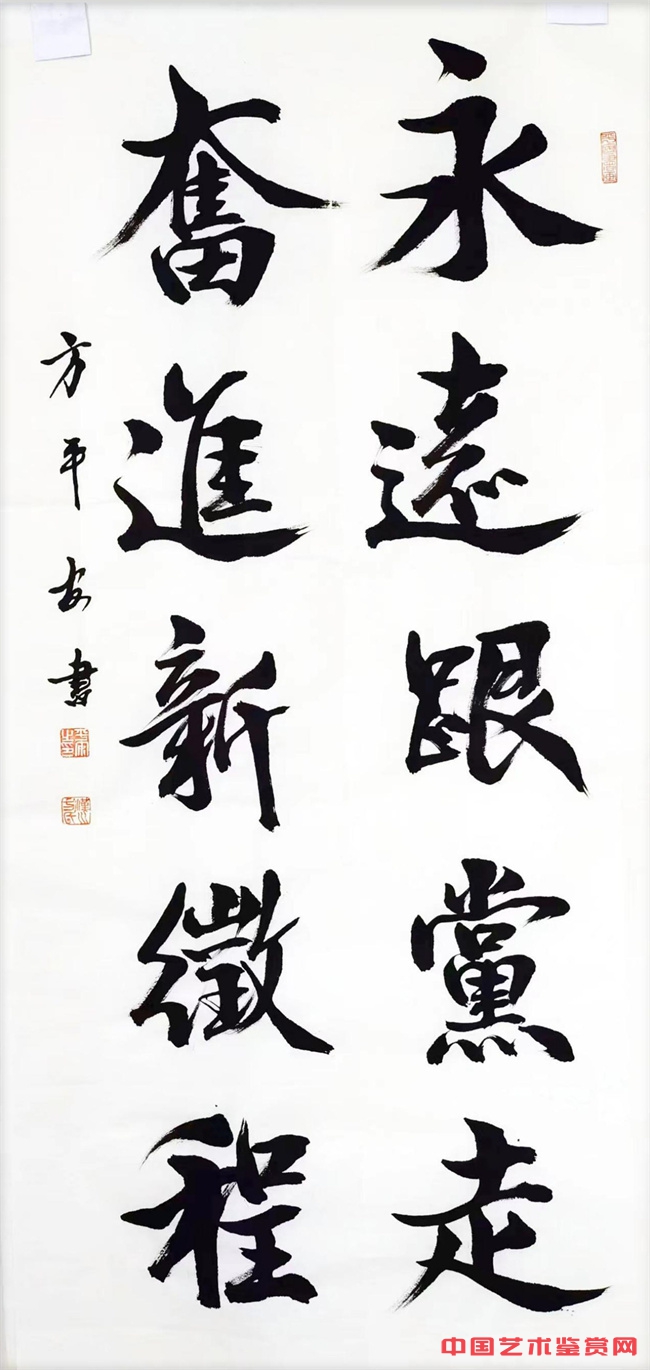 永遠跟黨走
奮進新徵程
方平安書
中国艺术鉴赏网